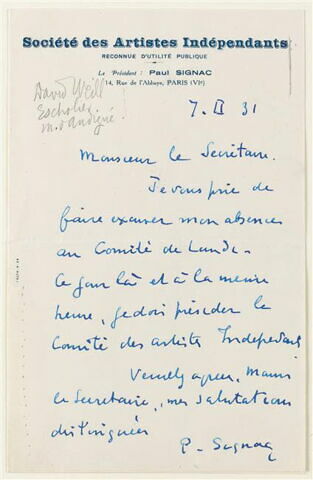 Société des Artistes Indépendants
RECONNUE D'UTILITÉ PUBLIQUE
Le Président : Paul SIGNAC
14, Rue de l'Abbaye, PARIS (VIe)
David Weill
Escholier
m. d'andigné !
7. II 31
Monsieur le Secrétaire.
Je vous prie de
faire excuser mon absence
au Comité de Lundi.
Ce jour là et à la même
heure, je dois présider le
Comité des artistes Indépendants
Veuillez agréer, Monsr
le Secrétaire, mes salutations
distinguées
P. Signac